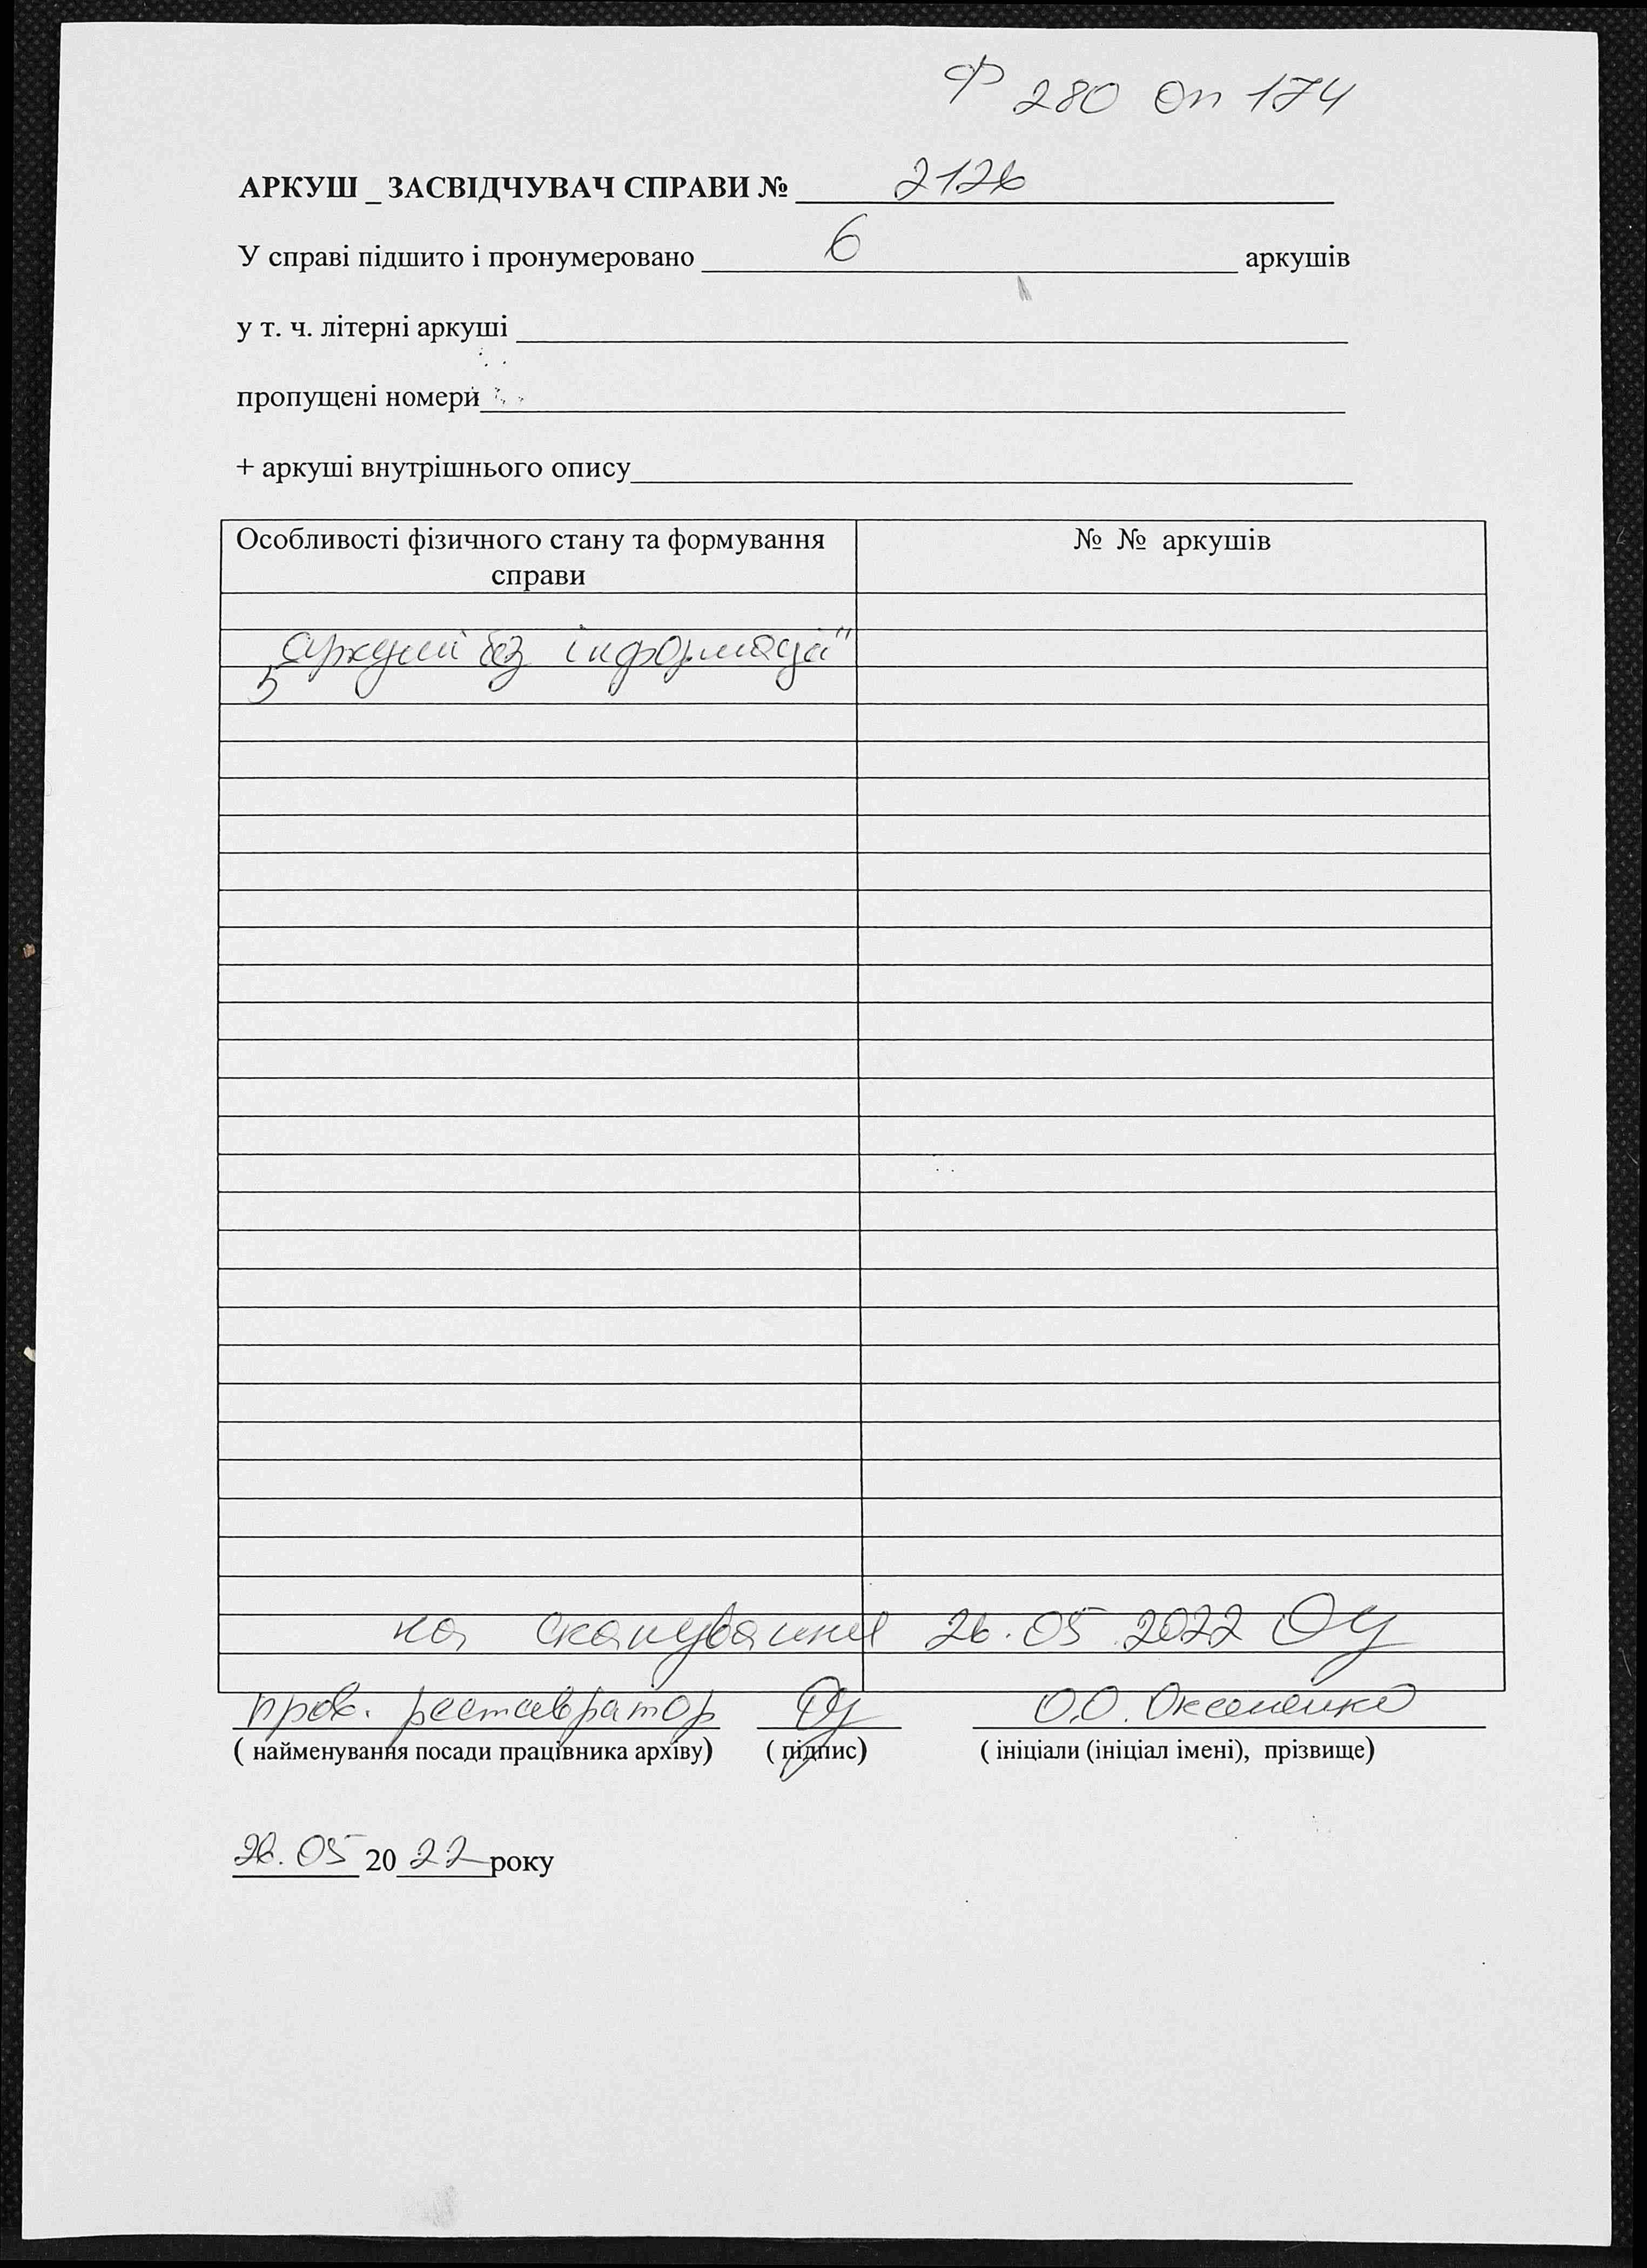 Ф 280 Оп 174
АРКУШ _ ЗАСВІДЧУВАЧ СПРАВИ № 2126
У справі підшито і пронумеровано 6 аркушів
у т. ч. літерні аркуші
пропущені номери
+ аркуші внутрішнього опису
Особливості фізичного стану та формування справи
№ № аркушів
аркуші без інформації"
5
на сканування 26.05.2022
пров. реставратор О.О. Оксененко
( найменування посади працівника архіву) ( підпис) ( ініціали (ініціал імені), прізвище)
26. 05 20 22 року